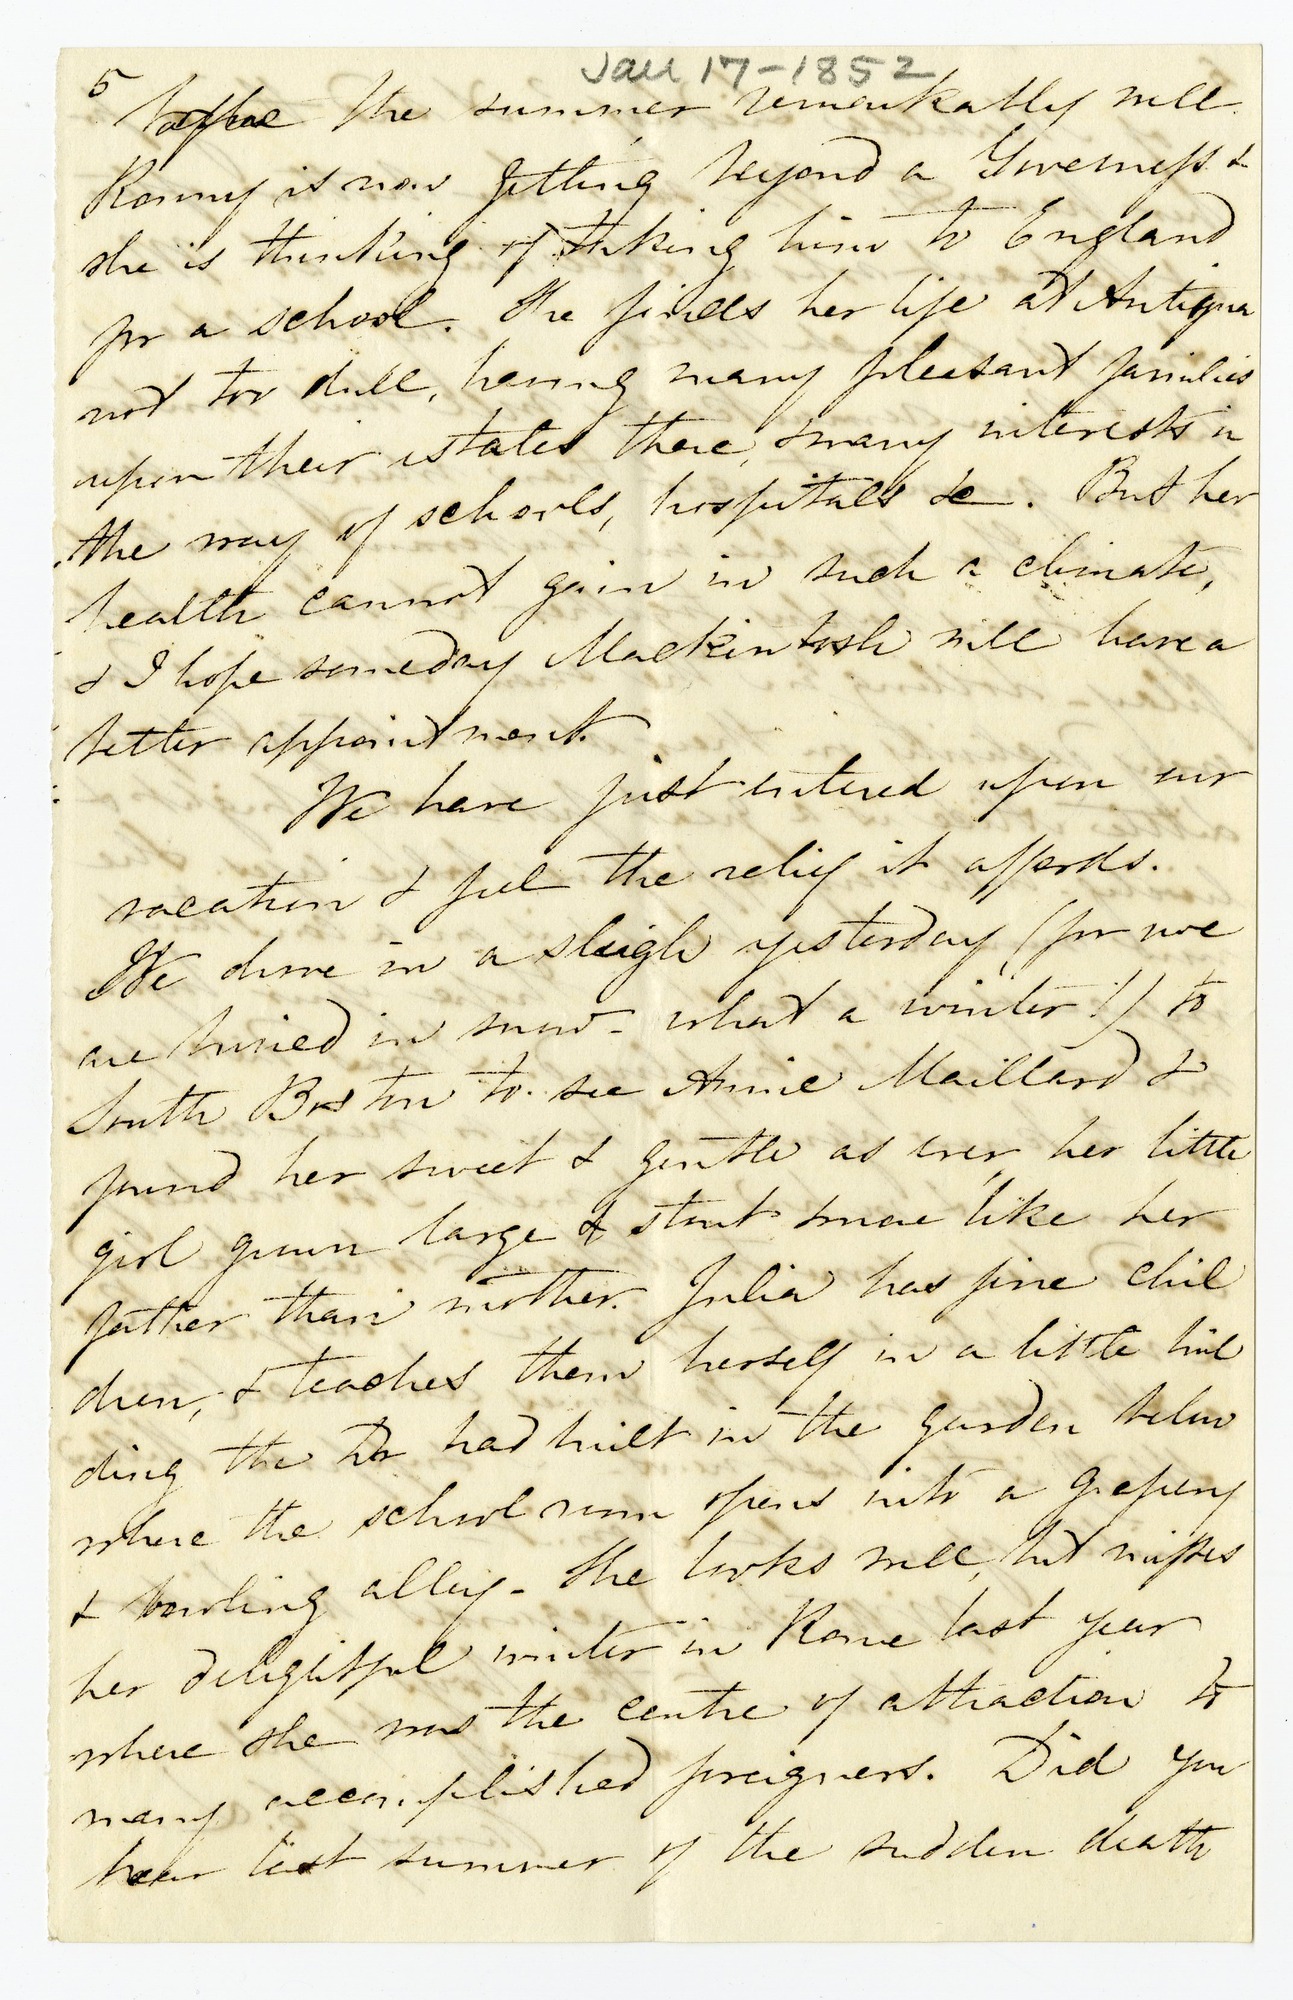 Jan 17-1852
5
the summer remarkably well.
Ronny is now getting beyond a Governess &
she is thinking of taking him to England
for a school. She finds her life at Antigua
not too dull, having many pleasant families
upon their estates there, & many interests in
the way of schools, hospitals &c. But her
health cannot gain in such a climate,
& I hope someday Mackintosh will have a
better appointment.
We have just entered upon our
vacation & feel the relief it affords.
We drove in a sleigh yesterday (for we
are buried in snow - what a winter!) to
South Boston to see Annie Maillard &
found her sweet & gentle as ever, her little
girl grown large & stout more like her
father than mother. Julia has fine chil
dren, & teaches them herself in a little buil
ding the Dr had built in the garden below
where the school room opens into a grapery
& bowling alley - She looks well, but misses
her delightful winter in Rome last year
where she was the centre of attraction to
many accomplished foreigners. Did you
hear last summer of the sudden death